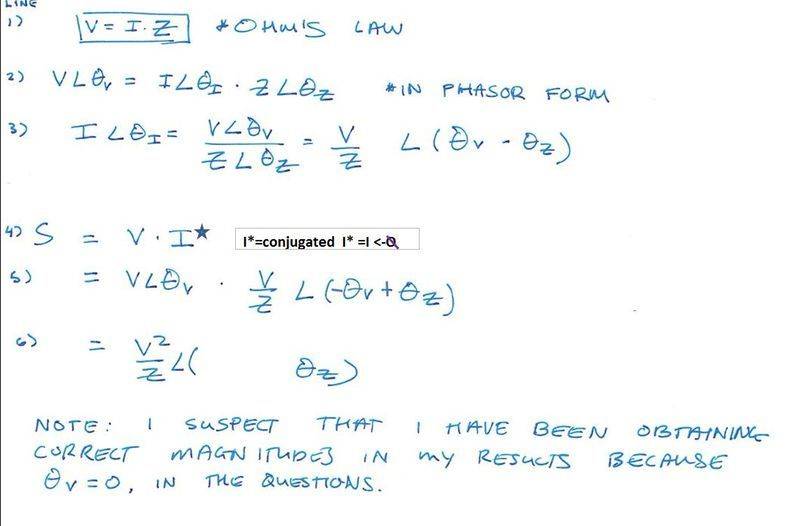 LINE
1) V = I · Z * OHM'S LAW
2) V∠θv = I∠θI · Z∠θZ * IN PHASOR FORM
3) I∠θI = V∠θv / Z∠θZ = V/Z ∠(θv - θZ)
4) S = V · I★ I*=conjugated I* =I <-θ
5) = V∠θv · V/Z ∠(-θv + θZ)
6) = V²/Z ∠( θZ)
NOTE: I SUSPECT THAT I HAVE BEEN OBTAINING
CORRECT MAGNITUDES IN MY RESULTS BECAUSE
θv = 0, IN THE QUESTIONS.